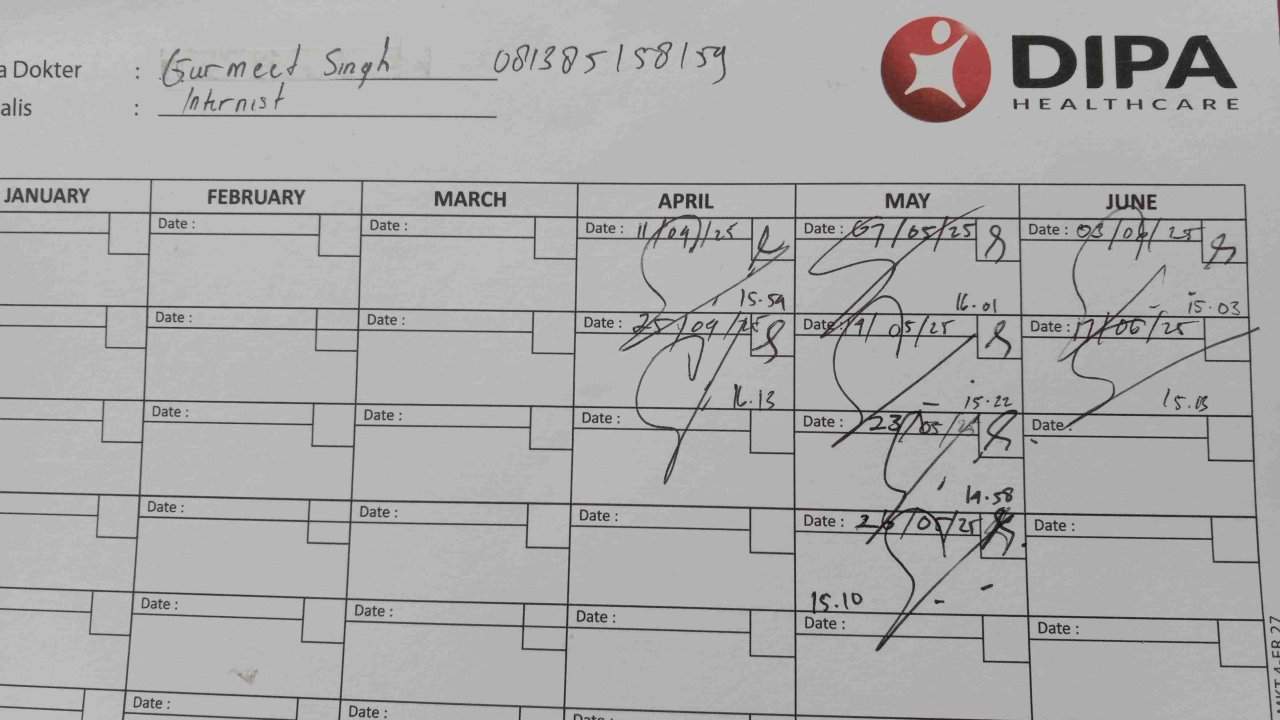 a Dokter : Gurmeet Singh 081385158159
alis : Internist
DIPA
HEALTHCARE
JANUARY FEBRUARY MARCH APRIL MAY JUNE
Date : Date : Date : 11/04/25 Date : 07/05/25 Date : 03/06/25
15.54 16.01 15.03
Date : Date : Date : 25/04/25 Date : 19/05/25 Date : 17/06/25
16.13 15.22 15.13
Date : Date : Date : Date : 23/05/25 Date :
14.58
Date : Date : Date : Date : 26/05/25 Date :
15.10
Date : Date : Date : Date : Date :
Date : Date : Date :